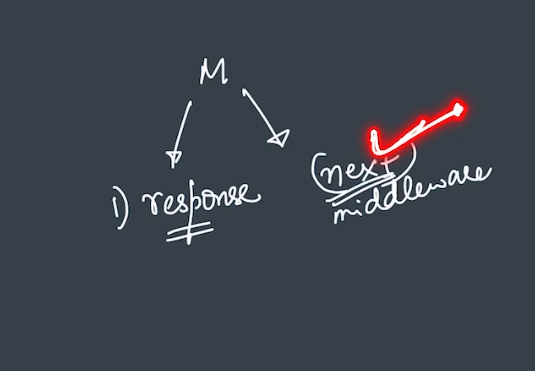 M
1) response
(next)
middleware